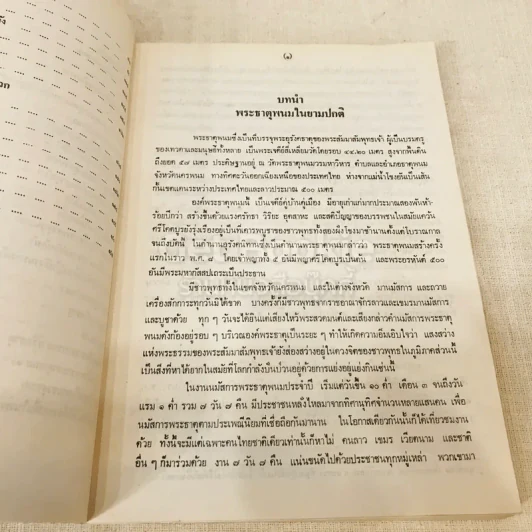 (๑)
บทนำ
พระธาตุพนมในยามปกติ
พระธาตุพนมซึ่งเป็นที่บรรจุพระอุรังคธาตุของพระสัมมาสัมพุทธเจ้า ผู้เป็นบรมครู
ของเทวดาและมนุษย์ทั้งหลาย เป็นพระเจดีย์สี่เหลี่ยมวัดโดยรอบ ๔๙.๒๐ เมตร สูงจากพื้นดิน
ถึงยอด ๕๗ เมตร ประดิษฐานอยู่ ณ วัดพระธาตุพนมวรมหาวิหาร ตำบลและอำเภอธาตุพนม
จังหวัดนครพนม ทางทิศตะวันออกเฉียงเหนือของประเทศไทย ห่างจากแม่น้ำโขงอันเป็นเส้น
กั้นเขตแดนระหว่างประเทศไทยและลาวประมาณ ๕๐๐ เมตร
องค์พระธาตุพนมนี้ เป็นเจดีย์คู่บ้านคู่เมือง มีอายุเก่าแก่มาประมาณสองพันห้า
ร้อยปีกว่า สร้างขึ้นด้วยแรงศรัทธา วิริยะ อุตสาหะ และสติปัญญาของบรรพชนในสมัยแคว้น
ศรีโคตบูรยังรุ่งเรืองอยู่เป็นที่เคารพบูชาของชาวพุทธทั้งสองฝั่งโขงมาช้านานตั้งแต่โบราณกาล
จนถึงบัดนี้ ในตำนานอุรังคนิทานซึ่งเป็นตำนานพระธาตุพนมกล่าวว่า พระธาตุพนมสร้างครั้ง
แรกในราว พ.ศ. ๘ โดยเจ้าพญาทั้ง ๕ อันมีพญาศรีโคตบูรเป็นต้น และพระอรหันต์ ๕๐๐
อันมีพระมหากัสสปเถระเป็นประธาน
มีชาวพุทธทั้งในเขตจังหวัดนครพนม และในต่างจังหวัด มานมัสการ และถวาย
เครื่องสักการะทุกวันมิได้ขาด บางครั้งก็มีชาวพุทธจากราชอาณาจักรลาวและเขมรมานมัสการ
และบูชาด้วย ทุก ๆ วันจะได้ยินแต่เสียงไหว้พระสวดมนต์และเสียงกล่าวคำนมัสการพระธาตุ
พนมดังก้องอยู่รอบ ๆ บริเวณองค์พระธาตุเป็นระยะ ๆ ทำให้เกิดความอิ่มเอิบใจว่า แสงสว่าง
แห่งพระธรรมของพระสัมมาสัมพุทธเจ้ายังส่องสว่างอยู่ในดวงจิตของชาวพุทธในภูมิภาคส่วนนี้
เป็นสิ่งที่หาได้ยากในสมัยที่โลกกำลังปั่นป่วนอยู่ด้วยการแย่งอยู่แย่งกินเช่นนี้
ในงานนมัสการพระธาตุพนมประจำปี เริ่มแต่วันขึ้น ๑๐ ค่ำ เดือน ๓ จนถึงวัน
แรม ๑ ค่ำ รวม ๗ วัน ๗ คืน มีประชาชนหลั่งไหลมาจากทิศานุทิศจำนวนหลายแสนคน เพื่อ
นมัสการพระธาตุตามประเพณีนิยมที่เชื่อถือกันมานาน ในโอกาสเดียวกันนั้นก็ได้เที่ยวชมงาน
ด้วย ทั้งนี้จะมีแต่เฉพาะคนไทยชาติเดียวเท่านั้นก็หาไม่ คนลาว เขมร เวียดนาม และชาติ
อื่น ๆ ก็มาร่วมด้วย งาน ๗ วัน ๗ คืน แน่นขนัดไปด้วยประชาชนทุกหมู่เหล่า พวกเขามา